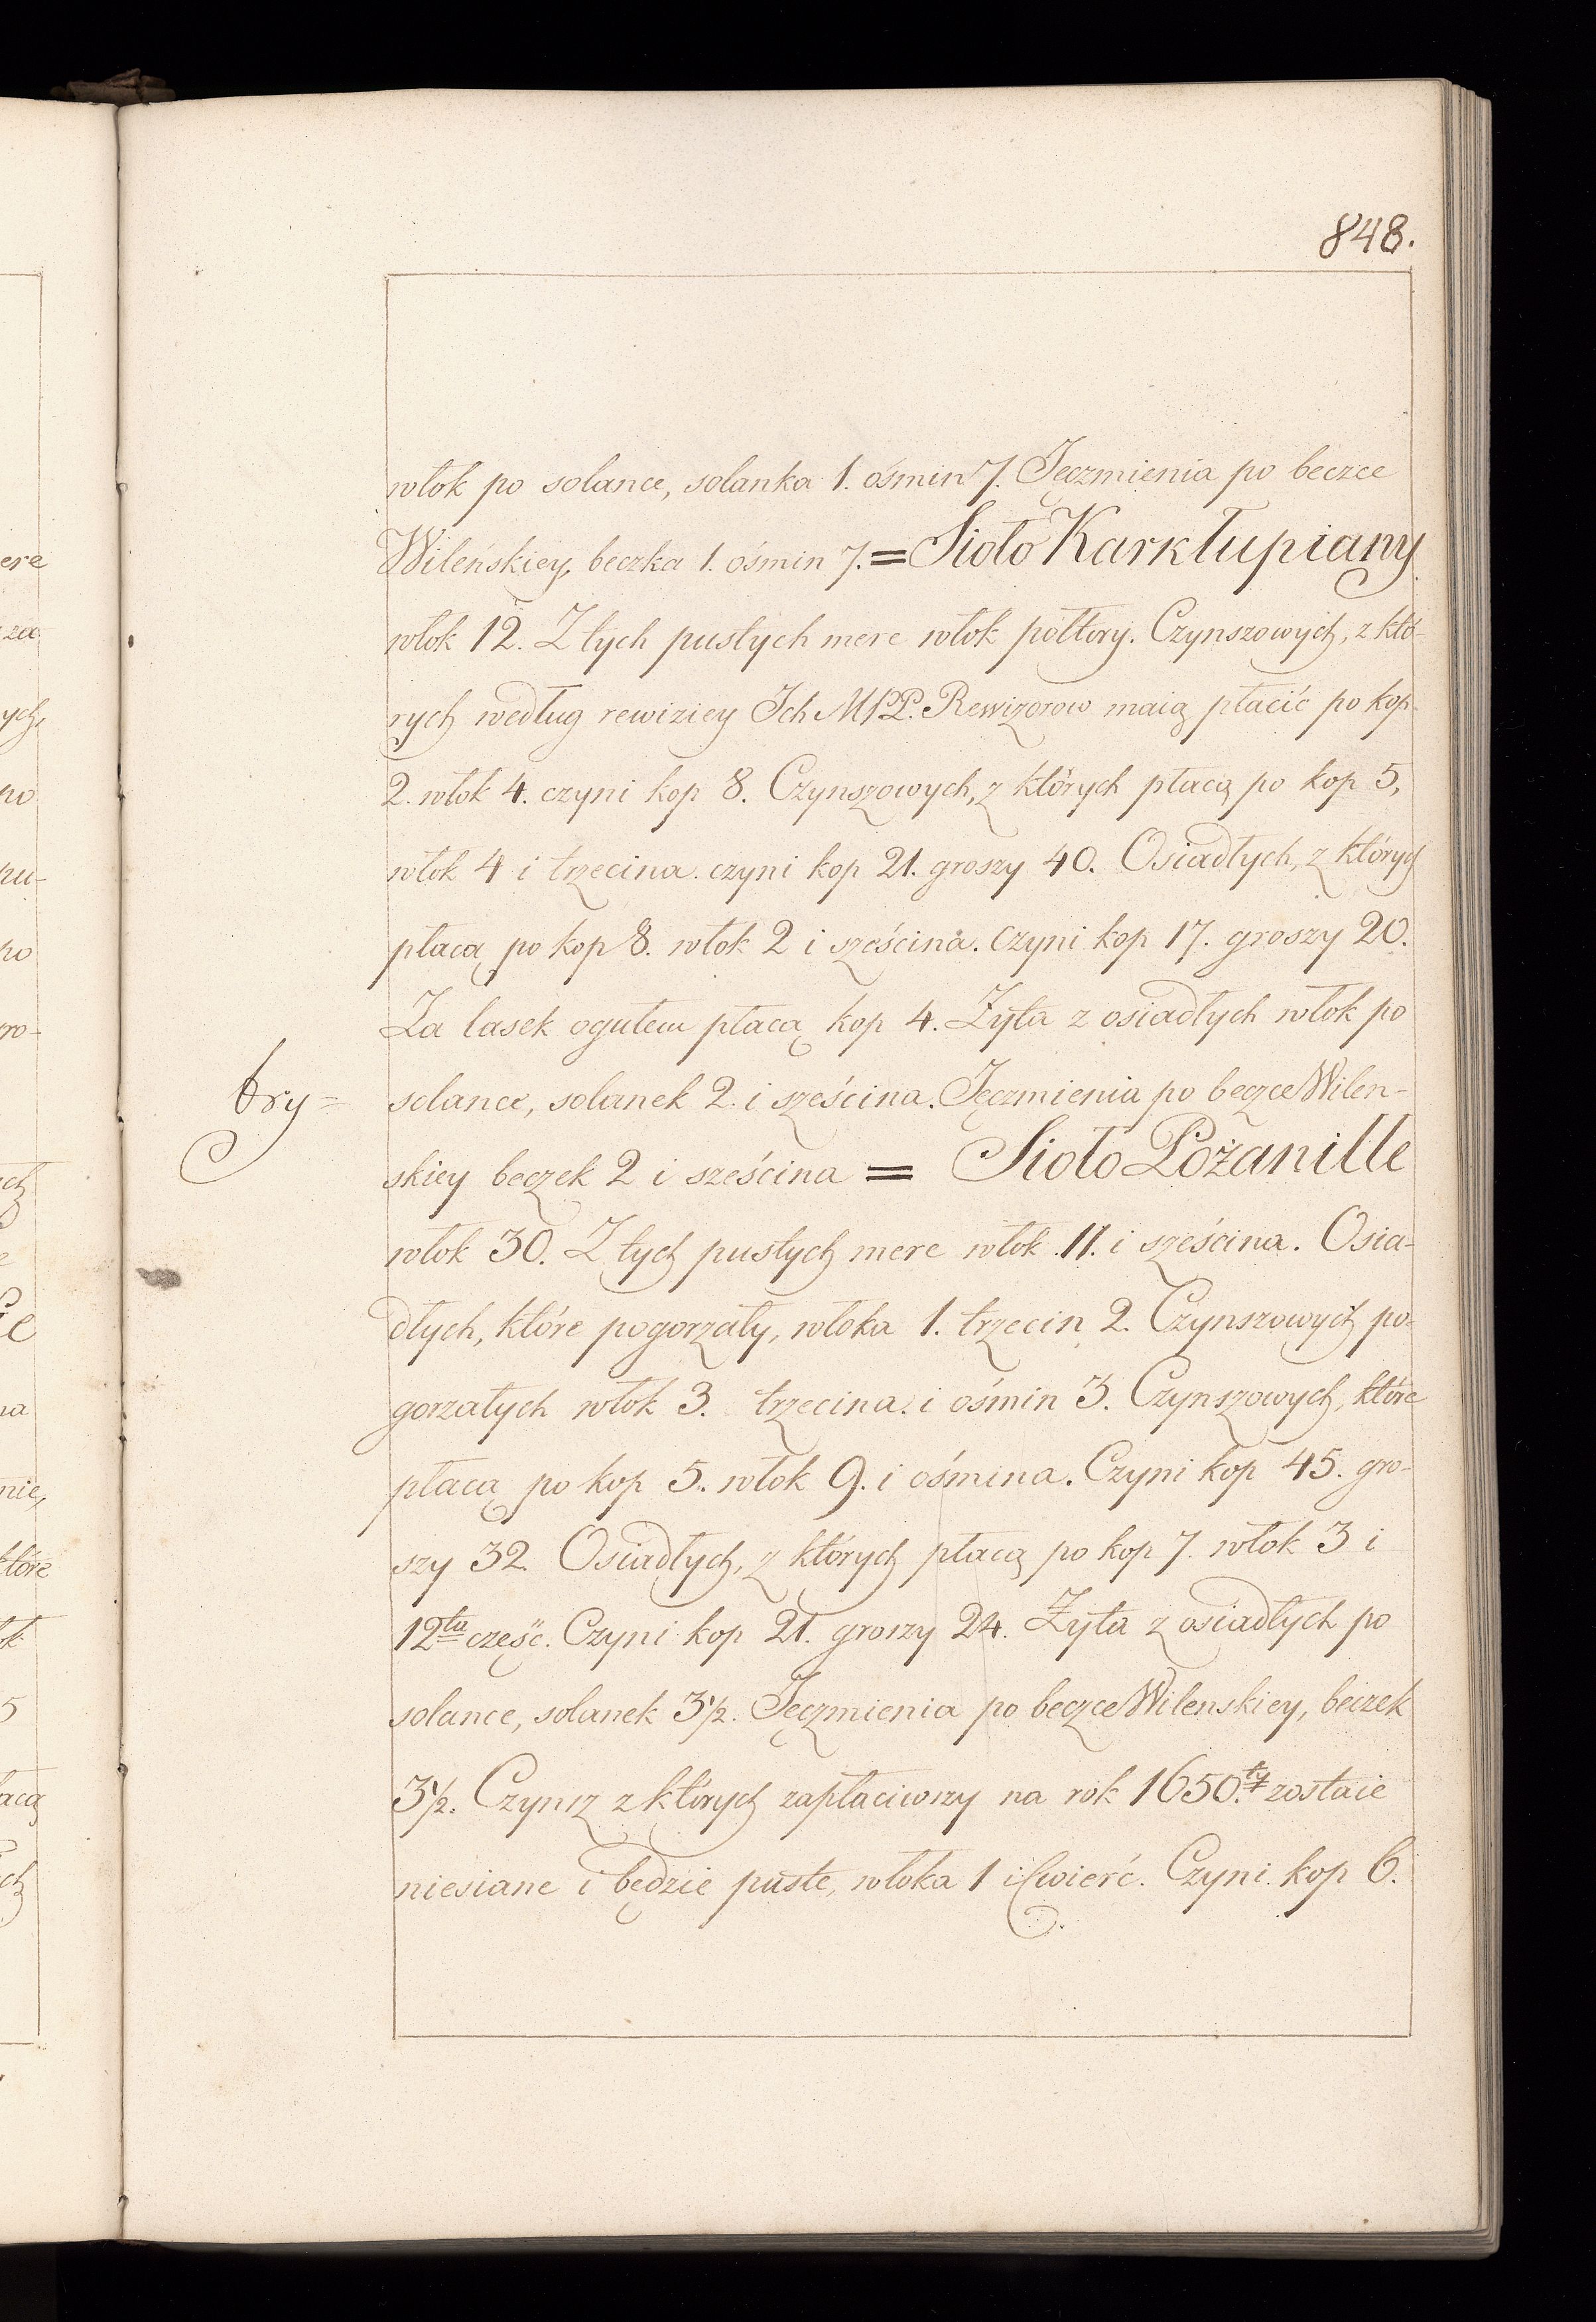 848.
włok po solance, solanka 1. ośmin 7. Jęczmienia po beczce
Wileńskiey, beczka 1. ośmin 7. = Sioło Karkłupiany
włok 12. Z tych pustych mere włok półtory. Czynszowych, z któ-
rych według rewiziey Ich MPP. Rewizorow maią płacić po kop
2. włok 4. czyni kop 8. Czynszowych, z których płacą po kop 5,
włok 4 i trzecina. czyni kop 21. groszy 40. Osiadłych, z których
płacą po kop 8. włok 2 i sześcina. czyni kop 17. groszy 20.
Za lasek ogułem płacą kop 4. Żyta z osiadłych włok po
solance, solanek 2. i sześcina. Jęczmienia po beczce Wilen-
skiey beczek 2 i sześcina = Sioło Pożanille
włok 30. Z tych pustych mere włok 11. i sześcina. Osia-
dłych, które pogorzały, włoka 1. trzecin 2. Czynszowych po-
gorzałych włok 3. trzecina. i ośmin 3. Czynszowych, które
płacą po kop 5. włok 9. i ośmina. Czyni kop 45. gro-
szy 32. Osiadłych, z których płacą po kop 7. włok 3 i
12ta część. Czyni kop 21. groszy 24. Żyta z osiadłych po
solance, solanek 3 1/2. Jęczmienia po beczce Wilenskiey, beczek
3 1/2. Czynsz z których zapłaciwszy na rok 1650.ty zostaie
niesiane i będzie puste, włoka 1 i Ćwierć. Czyni kop 6.
try=